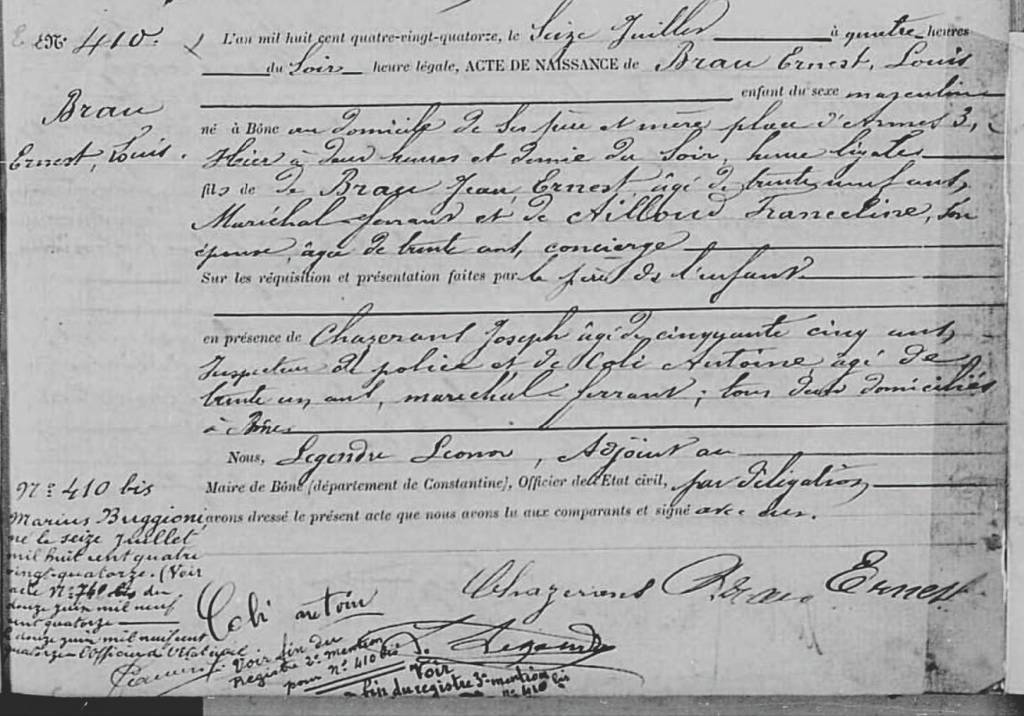 N° 410.
Brau
Ernest, Louis.
L'an mil huit cent quatre-vingt-quatorze, le Seize Juillet à quatre heures
du Soir heure légale, ACTE DE NAISSANCE de Brau Ernest, Louis
enfant du sexe masculin
né à Bône au domicile de ses père et mère place d'Armes 3,
Hier à deux heures et demie du Soir, heure légale
fils de de Brau Jean Ernest âgé de trente neuf ans,
Maréchal-ferrant et de Ailloud Franceline, son
épouse, âgée de trente ans, concierge
Sur les réquisition et présentation faites par le père de l'enfant
en présence de Chazerans Joseph âgé de cinquante cinq ans,
Inspecteur de police et de Coli Antoine âgé de
trente un ans, maréchal-ferrant; tous deux domiciliés
à Bône
Nous, Legendre Leonor, Adjoint au
Maire de Bône (département de Constantine), Officier de l'Etat civil, par délégation
avons dressé le présent acte que nous avons lu aux comparants et signé avec eux.
N° 410 bis
Marius Buggioni
né le seize juillet
mil huit cent quatre
vingt-quatorze. (Voir
acte N° 740 bis du
douze juin mil neuf
cent quatorze
le douze juin mil neuf cent
quatorze l'Officier de l'Etat civil
Chazerans Brau Ernest
Coli antoin
L. Legendre
Voir fin du
Registre 2e mention
pour n° 410 bis
Voir
fin du registre 3e mention
n° 410 bis